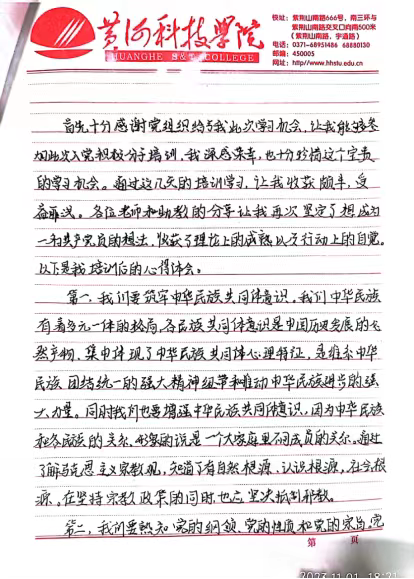 黄河科技学院
HUANGHE S&T COLLEGE
校址：紫荆山南路666号，南三环与
紫荆山南路交叉口向南500米
（紫荆山南路、宇通路）
电话：0371-68951486 68880130
邮编：450005
网址：http://www.hhstu.edu.cn
首先十分感谢党组织给予我此次学习机会，让我能够参
加此次入党积极分子培训，我深感荣幸，也十分珍惜这个宝贵
的学习机会。通过这几天的培训学习，让我收获颇丰，受
益匪浅。各位老师和助教的分享让我再次坚定了想成为
一名共产党员的想法，收获了理论上的成熟以及行动上的自觉。
以下是我培训后的心得体会。
第一，我们要筑牢中华民族共同体意识。我们中华民族
有着多元一体的格局，各民族共同体意识是中国历史发展的必
然产物，集中体现了中华民族共同体心理特征，是维系中华
民族团结统一的强大精神纽带和推动中华民族进步的强
大力量。同时我们也要增强中华民族共同体意识，因为中华民族
和各民族的关系，形象的说是一个大家庭里不同成员的关系。通过
了解马克思主义宗教观，知道了有自然根源，认识根源，社会根
源。在坚持宗教政策的同时也要坚决抵制邪教。
第二，我们要熟知党的纲领，党的性质和党的宗旨，党
第 页
2023.11.01 18:21